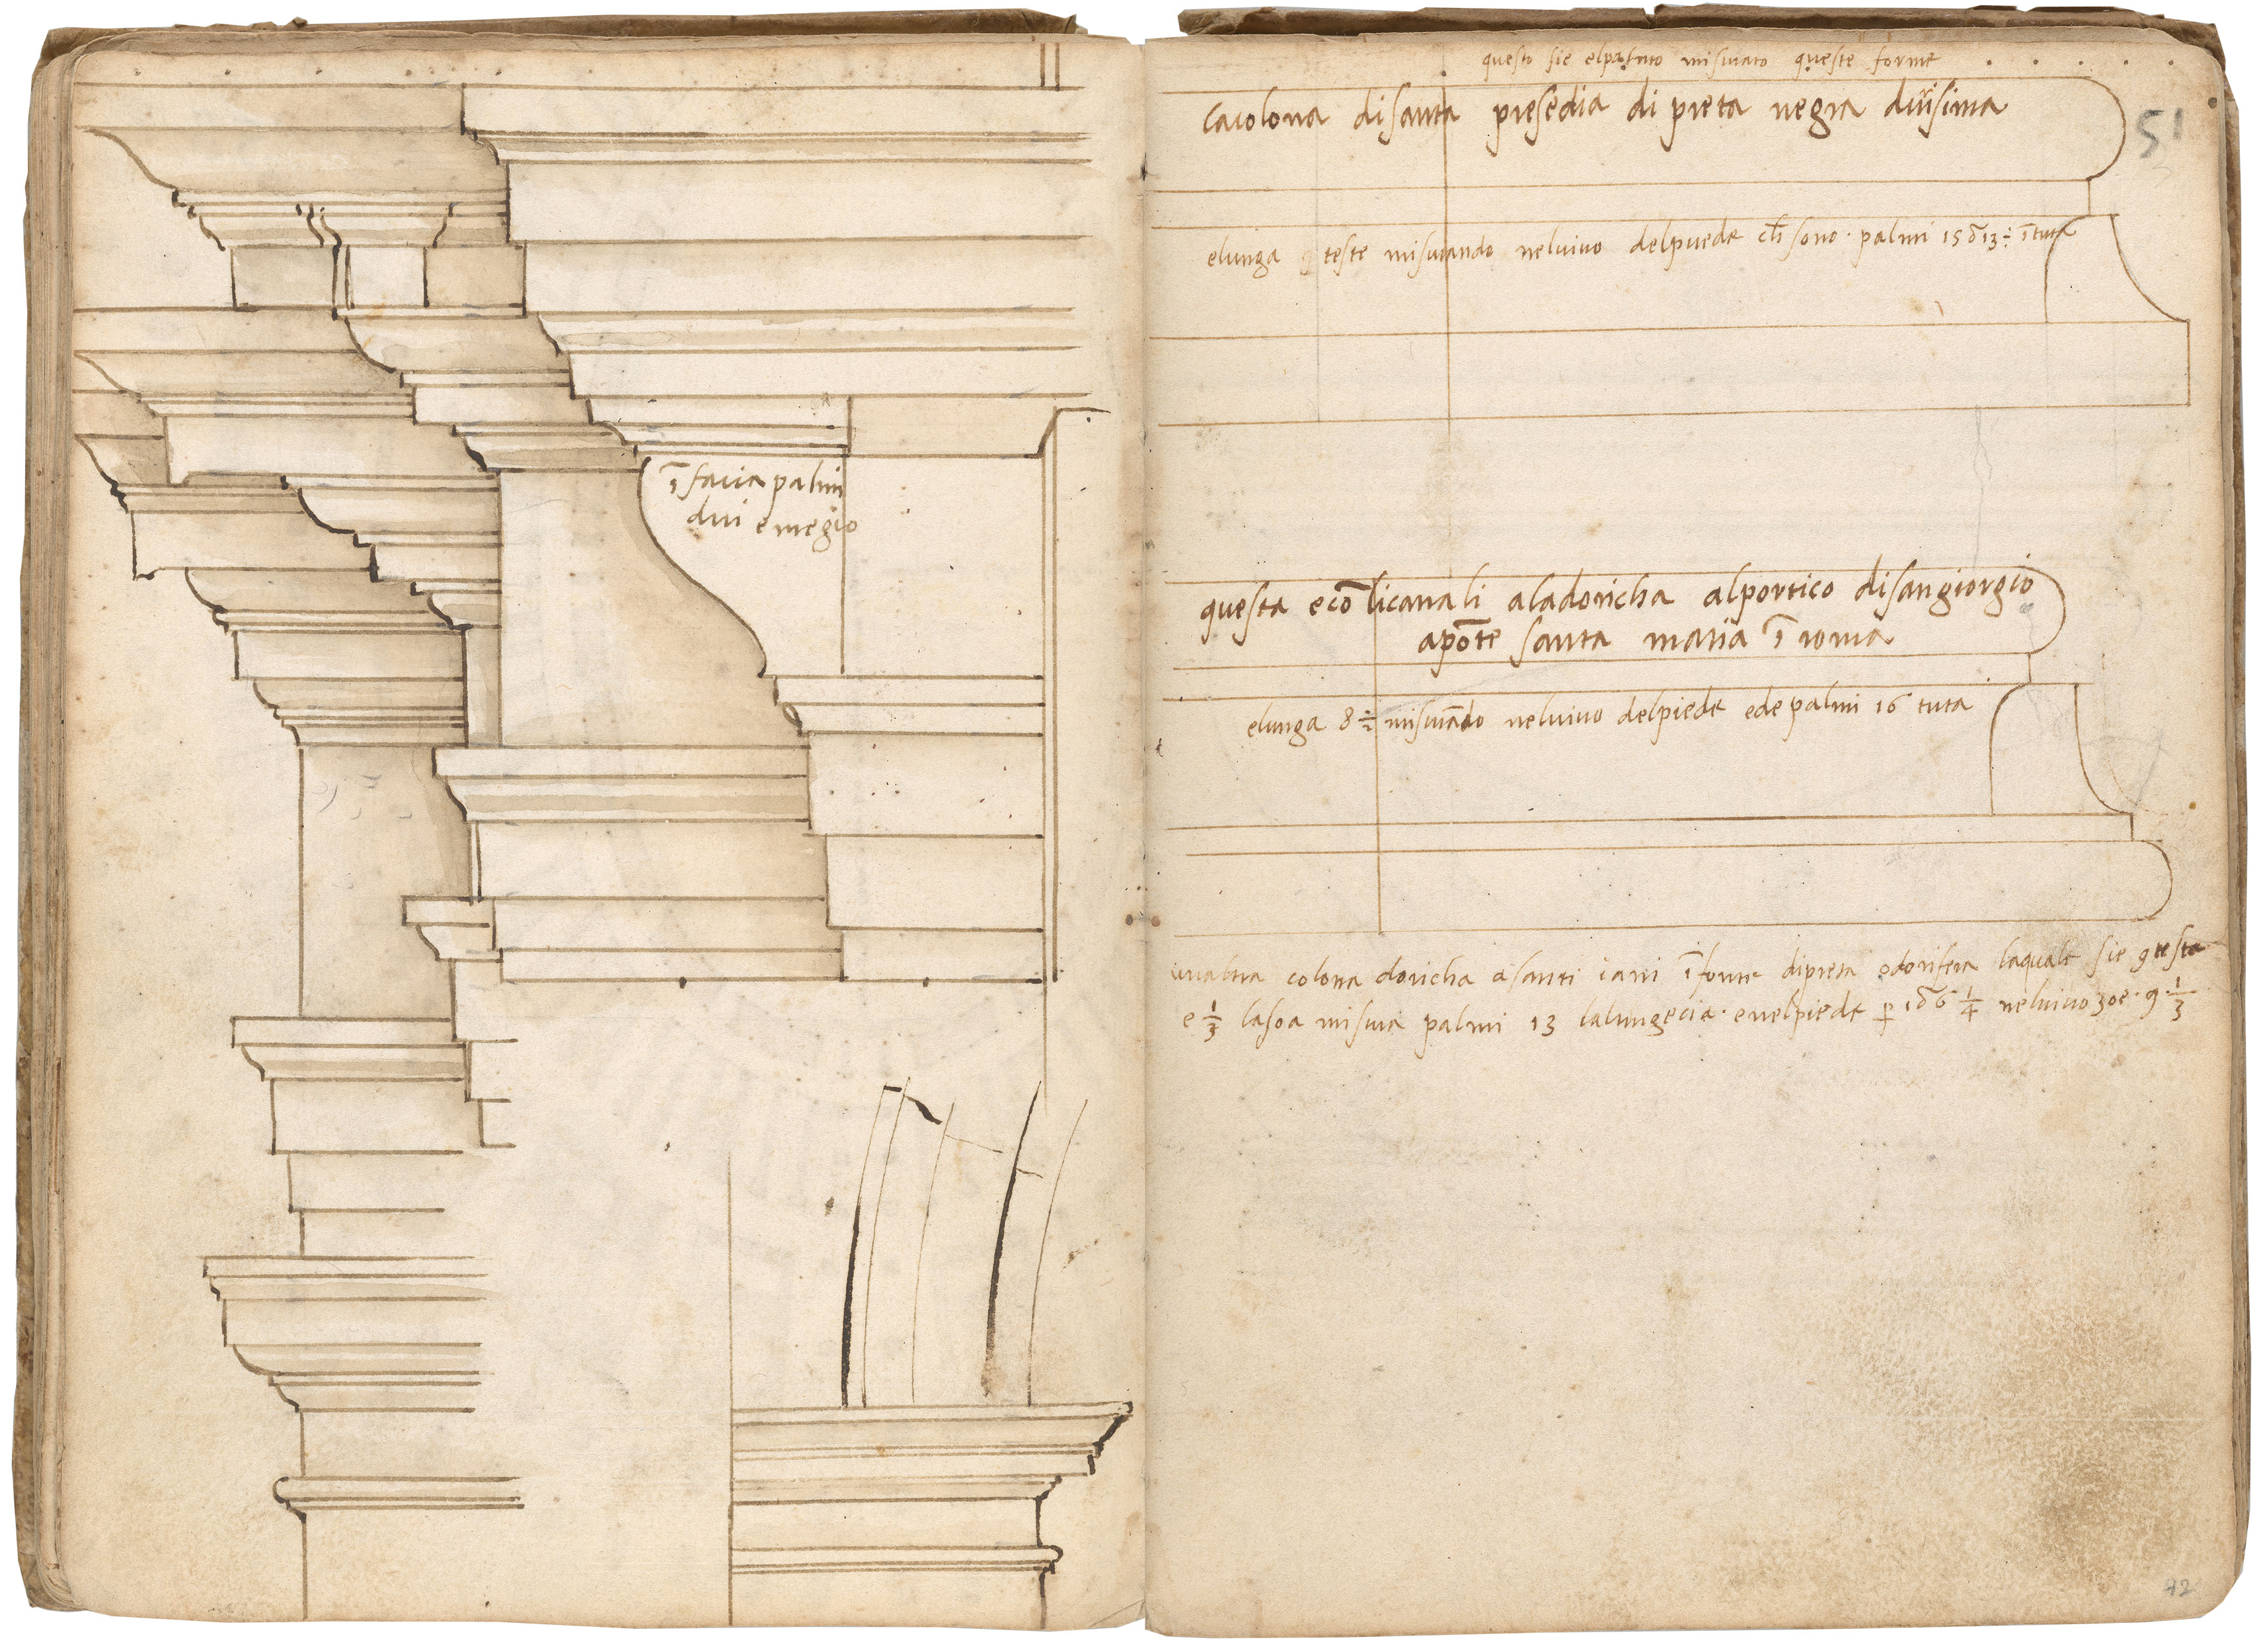 ī facia palmi
dui e megio
questo sie elpalmo misurato queste forme
51
la colona di santa presedia di preta negra durisima
elunga 9 teste misurando neluiuo delpuede ch̄ sono · palmi 15 δ 13 ÷ ī tuta
questa ecō licanali aladoricha alportico disangiorgio
apōte santa maria ī roma
elunga 8 ÷ misurādo neluiuo delpiede ede palmi 16 tuta
unaltra colona doricha a santi iani ī fonte dipreta odorifera laquale sie 9 testa
e 1/3 la soa misura palmi 13 lalungecia · enelpiede p 1 δ 6 1/4 neluiuo 30e · 9 · 1/3
42